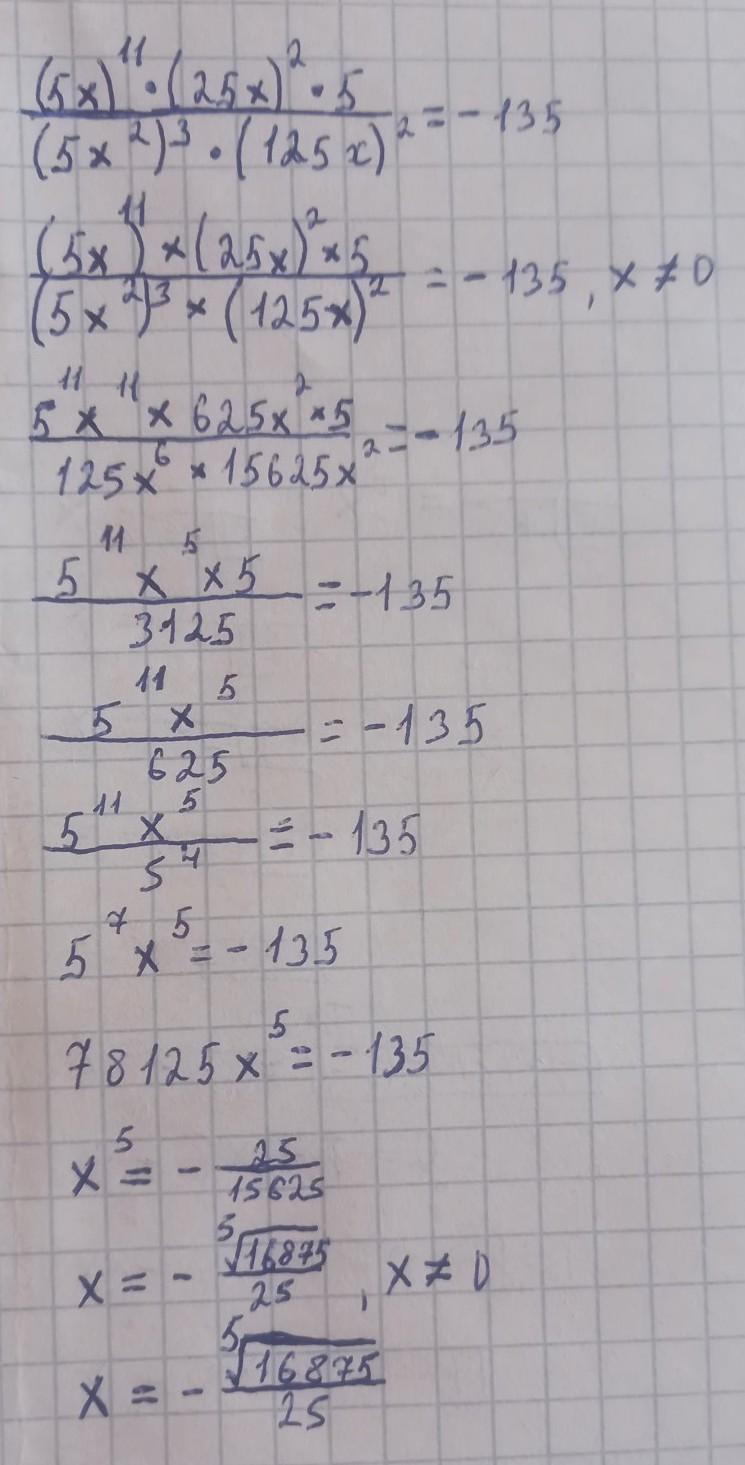 (5x)¹¹·(25x)²·5 / (5x²)³·(125x)² = -135
(5x)¹¹×(25x)²×5 / (5x²)³×(125x)² = -135, x≠0
5¹¹x¹¹×625x²×5 / 125x⁶×15625x² = -135
5¹¹x⁵×5 / 3125 = -135
5¹¹x⁵ / 625 = -135
5¹¹x⁵ / 5⁴ = -135
5⁷x⁵ = -135
78125x⁵ = -135
x⁵ = -25/15625
x = -⁵√16875 / 25, x≠0
x = -⁵√16875 / 25